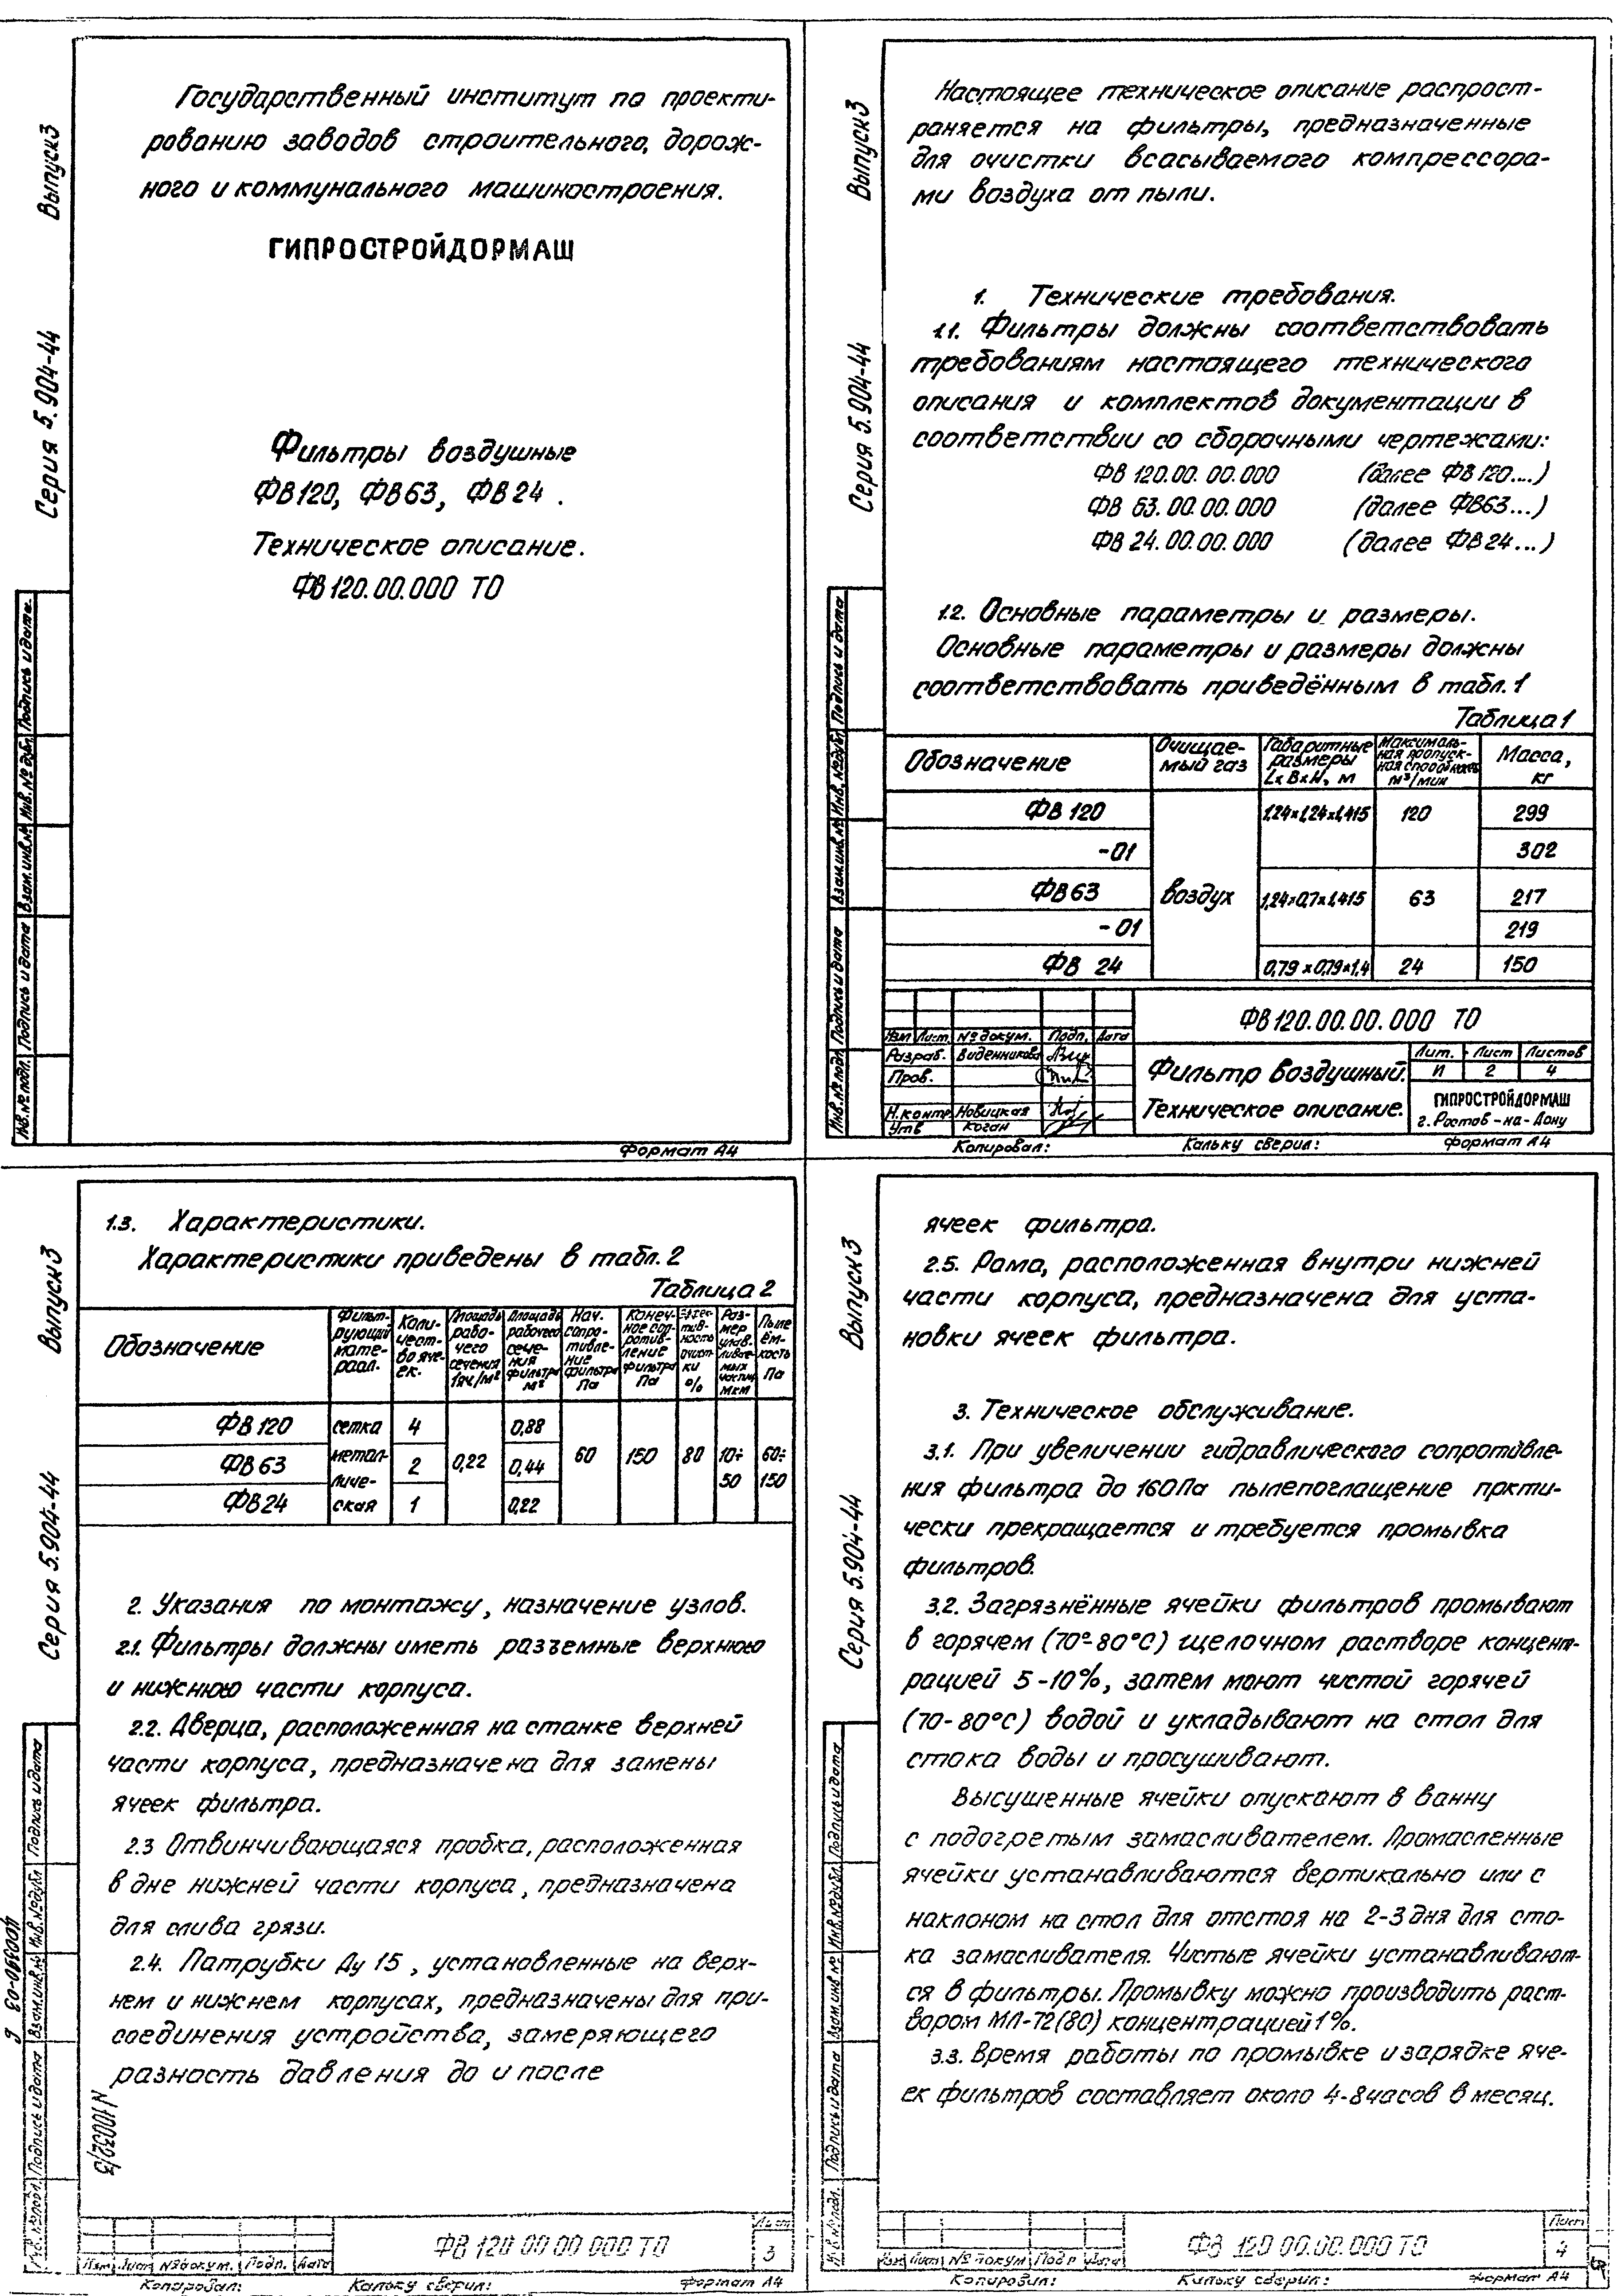 Государственный институт по проекти-
рованию заводов строительного, дорож-
ного и коммунального машиностроения.
ГИПРОСТРОЙДОРМАШ
Фильтры воздушные
ФВ120, ФВ63, ФВ24.
Техническое описание.
ФВ120.00.000 ТО
Серия 5.904-44 Выпуск3
Инв.№подл. Подпись и дата Взам.инв.№ Инв.№дубл. Подпись и дата.
Формат А4
Серия 5.904-44 Выпуск3
Настоящее техническое описание распрост-
раняется на фильтры, предназначенные
для очистки всасываемого компрессора-
ми воздуха от пыли.
1. Технические требования.
1.1. Фильтры должны соответствовать
требованиям настоящего технического
описания и комплектов документации в
соответствии со сборочными чертежами:
ФВ 120.00.00.000 (далее ФВ120...)
ФВ 63.00.00.000 (далее ФВ63...)
ФВ 24.00.00.000 (далее ФВ24...)
1.2. Основные параметры и размеры.
Основные параметры и размеры должны
соответствовать приведённым в табл.1
Таблица1
Обозначение Очищае-мый газ Габаритные размеры LxBxH, м Максималь-ная пропуск-ная способность м³/мин Масса, кг
ФВ 120 1,24x1,24x1,415 120 299
-01 302
ФВ63 воздух 1,24x0,7x1,415 63 217
-01 219
ФВ 24 0,79x0,79x1,4 24 150
Инв.№подл Подпись и дата Взам.инв.№ Инв.№дубл Подпись и дата
ФВ120.00.00.000 ТО
Изм Лист №докум. Подп. Дата
Разраб. Виденникова
Пров.
Н.контр Новицкая
Утв Коган
Фильтр воздушный.
Техническое описание.
Лит. Лист Листов
И 2 4
ГИПРОСТРОЙДОРМАШ
г.Ростов-на-Дону
Копировал: Кальку сверил: Формат А4
Серия 5.904-44 Выпуск3
1.3. Характеристики.
Характеристики приведены в табл.2
Таблица2
Обозначение Фильт-рующий мате-риал. Коли-чест-во яче-ек. Площадь рабо-чего сечения 1яч/м² Площадь рабочего сече-ния фильтра м² Нач. сопро-тивле-ние фильтра Па Конеч-ное соп-ротив-ление фильтра Па Эффек-тив-ность очист-ки % Раз-мер улав-ливае-мых частиц мкм Пыле ём-кость Па
ФВ120 сетка 4 0,88
ФВ63 метал- 2 0,22 0,44 60 150 80 10÷50 60÷150
ФВ24 личе-ская 1 0,22
2. Указания по монтажу, назначение узлов.
2.1. Фильтры должны иметь разъемные верхнюю
и нижнюю части корпуса.
2.2. Дверца, расположенная на станке верхней
части корпуса, предназначена для замены
ячеек фильтра.
2.3 Отвинчивающаяся пробка, расположенная
в дне нижней части корпуса, предназначена
для слива грязи.
2.4. Патрубки Ду 15, установленные на верх-
нем и нижнем корпусах, предназначены для при-
соединения устройства, замеряющего
разность давления до и после
Подпись и дата Взам.инв.№ Инв.№дубл Подпись и дата
Изм Лист №докум. Подп. Дата
ФВ 120 00 00 000 ТО
Лист
3
Копировал: Кальку сверил: Формат А4
Серия 5.904-44 Выпуск3
ячеек фильтра.
2.5. Рама, расположенная внутри нижней
части корпуса, предназначена для уста-
новки ячеек фильтра.
3. Техническое обслуживание.
3.1. При увеличении гидравлического сопротивле-
ния фильтра до 160Па пылепоглащение пркти-
чески прекращается и требуется промывка
фильтров.
3.2. Загрязнённые ячейки фильтров промывают
в горячем (70°-80°С) щелочном растворе концент-
рацией 5-10%, затем моют чистой горячей
(70-80°С) водой и укладывают на стол для
стока воды и просушивают.
Высушенные ячейки опускают в ванну
с подогретым замасливателем. Промасленные
ячейки устанавливаются вертикально или с
наклоном на стол для отстоя на 2-3 дня для сто-
ка замасливателя. Чистые ячейки устанавливают-
ся в фильтры. Промывку можно производить раст-
вором МЛ-72(80) концентрацией 1%.
3.3. Время работы по промывке и зарядке яче-
ек фильтров составляет около 4-8часов в месяц.
Инв.№подл. Подпись и дата Взам.инв.№ Инв.№дубл Подпись и дата
Изм Лист №докум Подп Дата
ФВ 120 00.00.000 ТО
Лист
4
Копировал: Кальку сверил: Формат А4